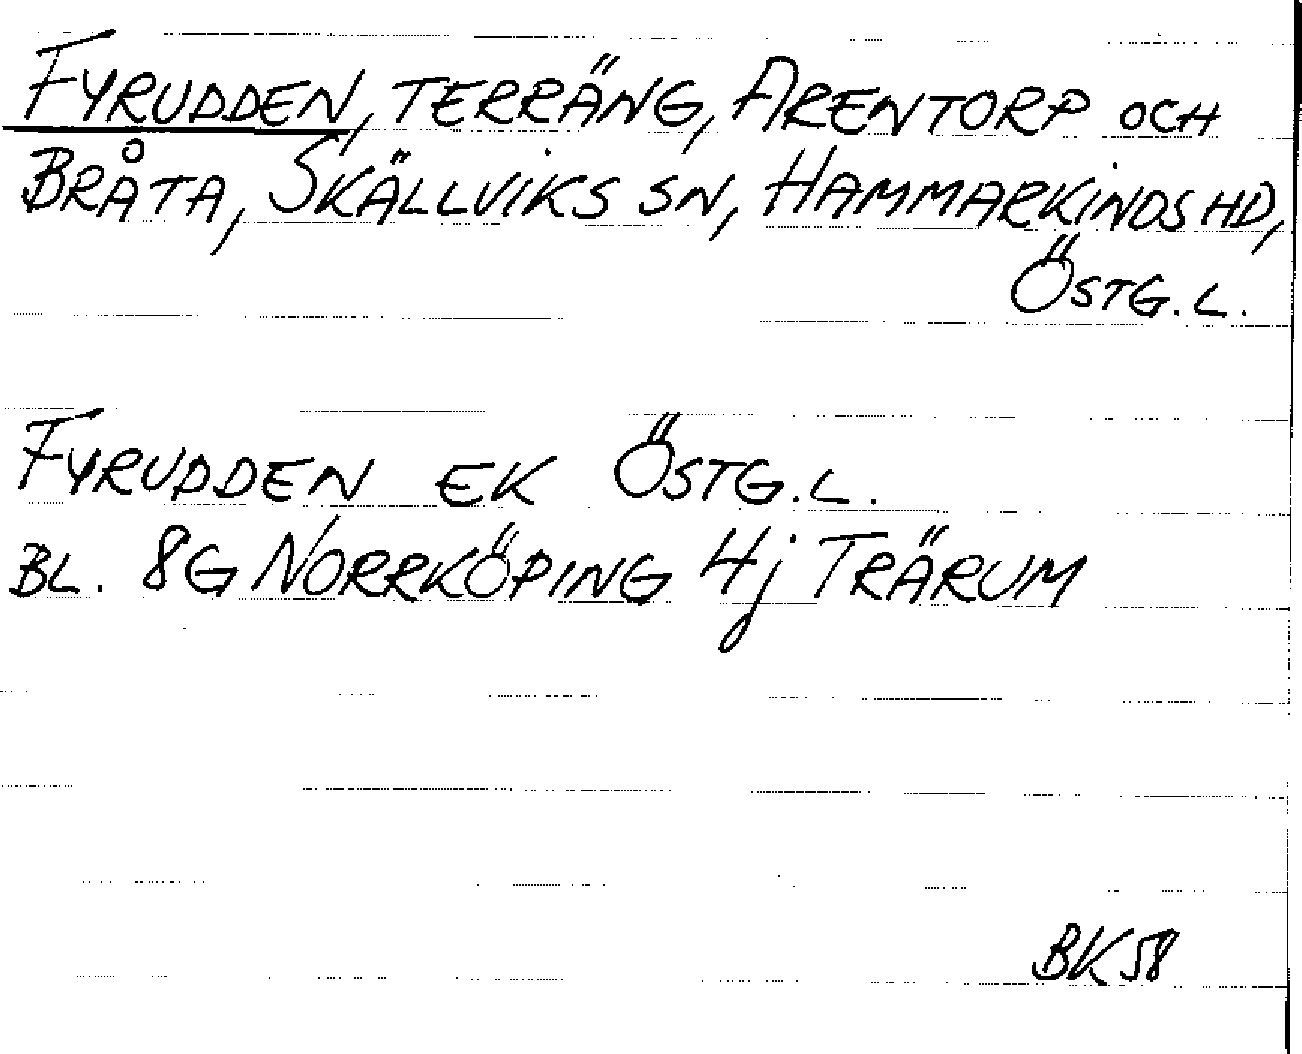 FYRUDDEN, TERRÄNG, ARENTORP OCH
BRÅTA, SKÄLLVIKS SN, HAMMARKINDS HD,
ÖSTG. L.
FYRUDDEN EK ÖSTG. L.
BL. 8G NORRKÖPING 4j TRÄRUM
BK 58